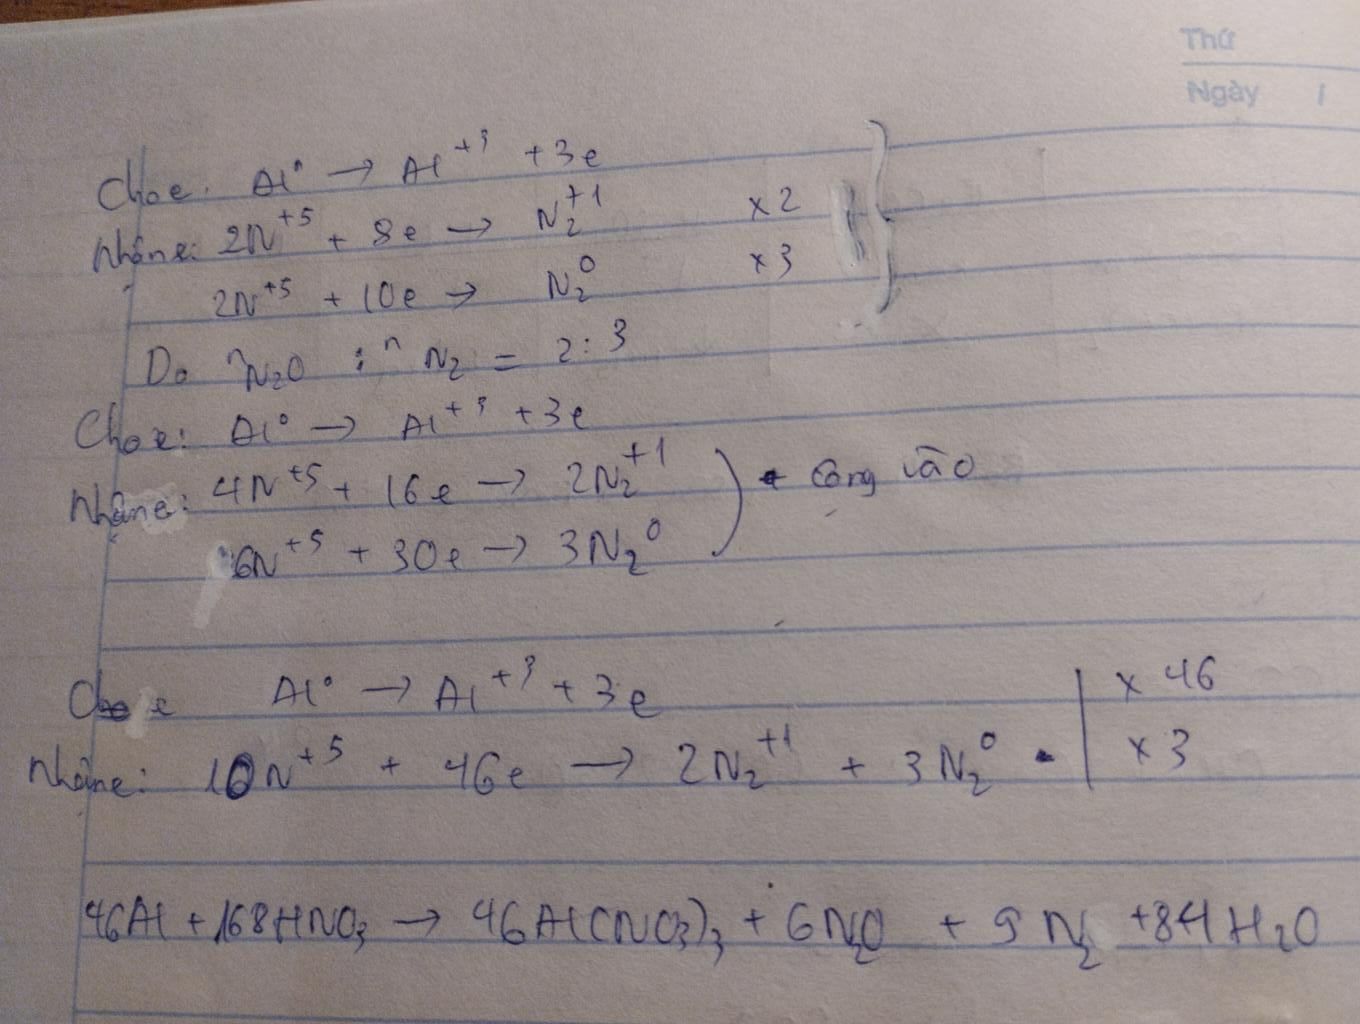 Thứ
Ngày /
Cho e: Al⁰ → Al⁺³ + 3e
Nhận e: 2N⁺⁵ + 8e → N₂⁺¹ x2
2N⁺⁵ + 10e → N₂⁰ x3
Do nN₂O : nN₂ = 2:3
Cho e: Al⁰ → Al⁺³ + 3e
Nhận e: 4N⁺⁵ + 16e → 2N₂⁺¹
6N⁺⁵ + 30e → 3N₂⁰ cộng vào
Cho e Al⁰ → Al⁺³ + 3e | x 46
Nhận e: 10N⁺⁵ + 46e → 2N₂⁺¹ + 3N₂⁰ | x 3
46Al + 168HNO₃ → 46Al(NO₃)₃ + 6N₂O + 9N₂ + 84H₂O